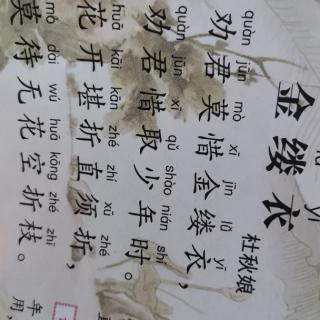 yī
金缕衣
杜秋娘
quàn jūn mò xī jīn lǚ yī
劝君莫惜金缕衣，
quàn jūn xī qǔ shào nián shí
劝君惜取少年时。
huā kāi kān zhé zhí xū zhé
花开堪折直须折，
mò dài wú huā kōng zhé zhī
莫待无花空折枝。
年
用，